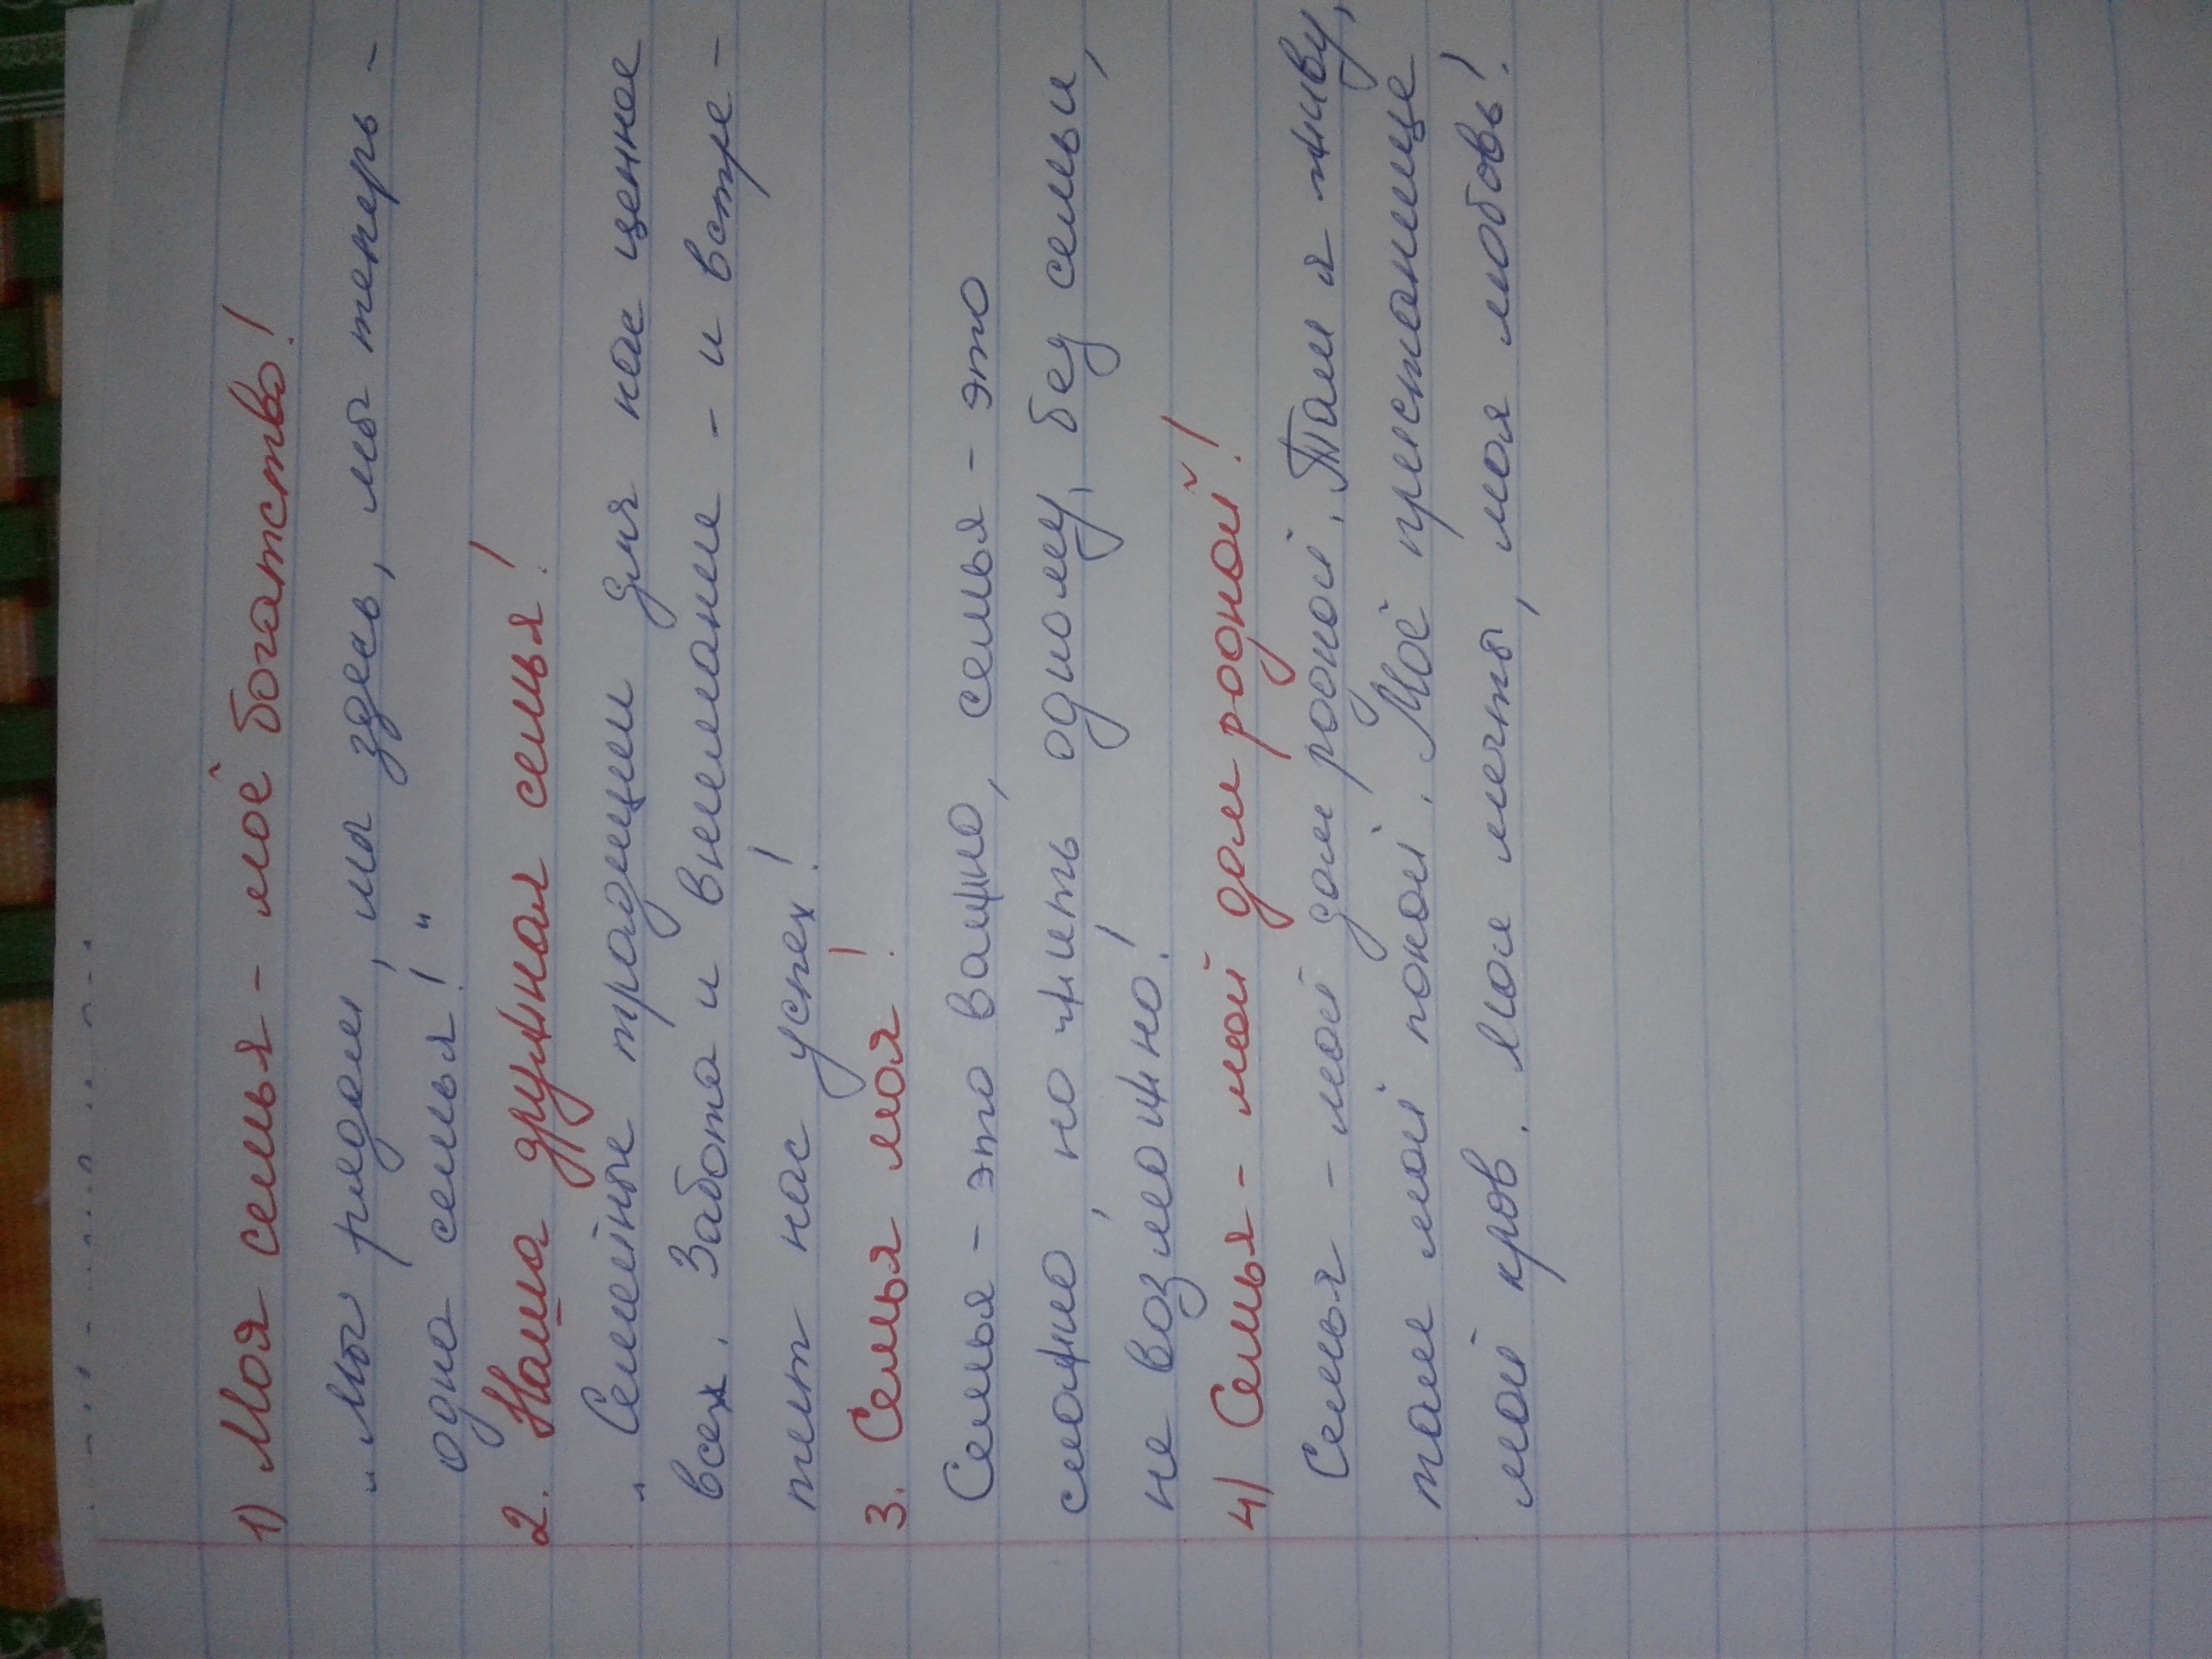 1) Моя семья - моё богатство!
„Мы рядом, мы здесь, мы теперь -
одна семья!“
2. Наша дружная семья!
„Семейные традиции для нас ценнее
всех. Забота и внимание - и встре-
тит нас успех!
3. Семья моя!
Семья - это важно, семья - это
сложно, но жить одному, без семьи,
не возможно!
4) Семья - мой дом родной!
Семья - мой дом родной. Там я живу,
там мой покой. Моё пристанище
мой кров. Мои мечты, моя любовь!